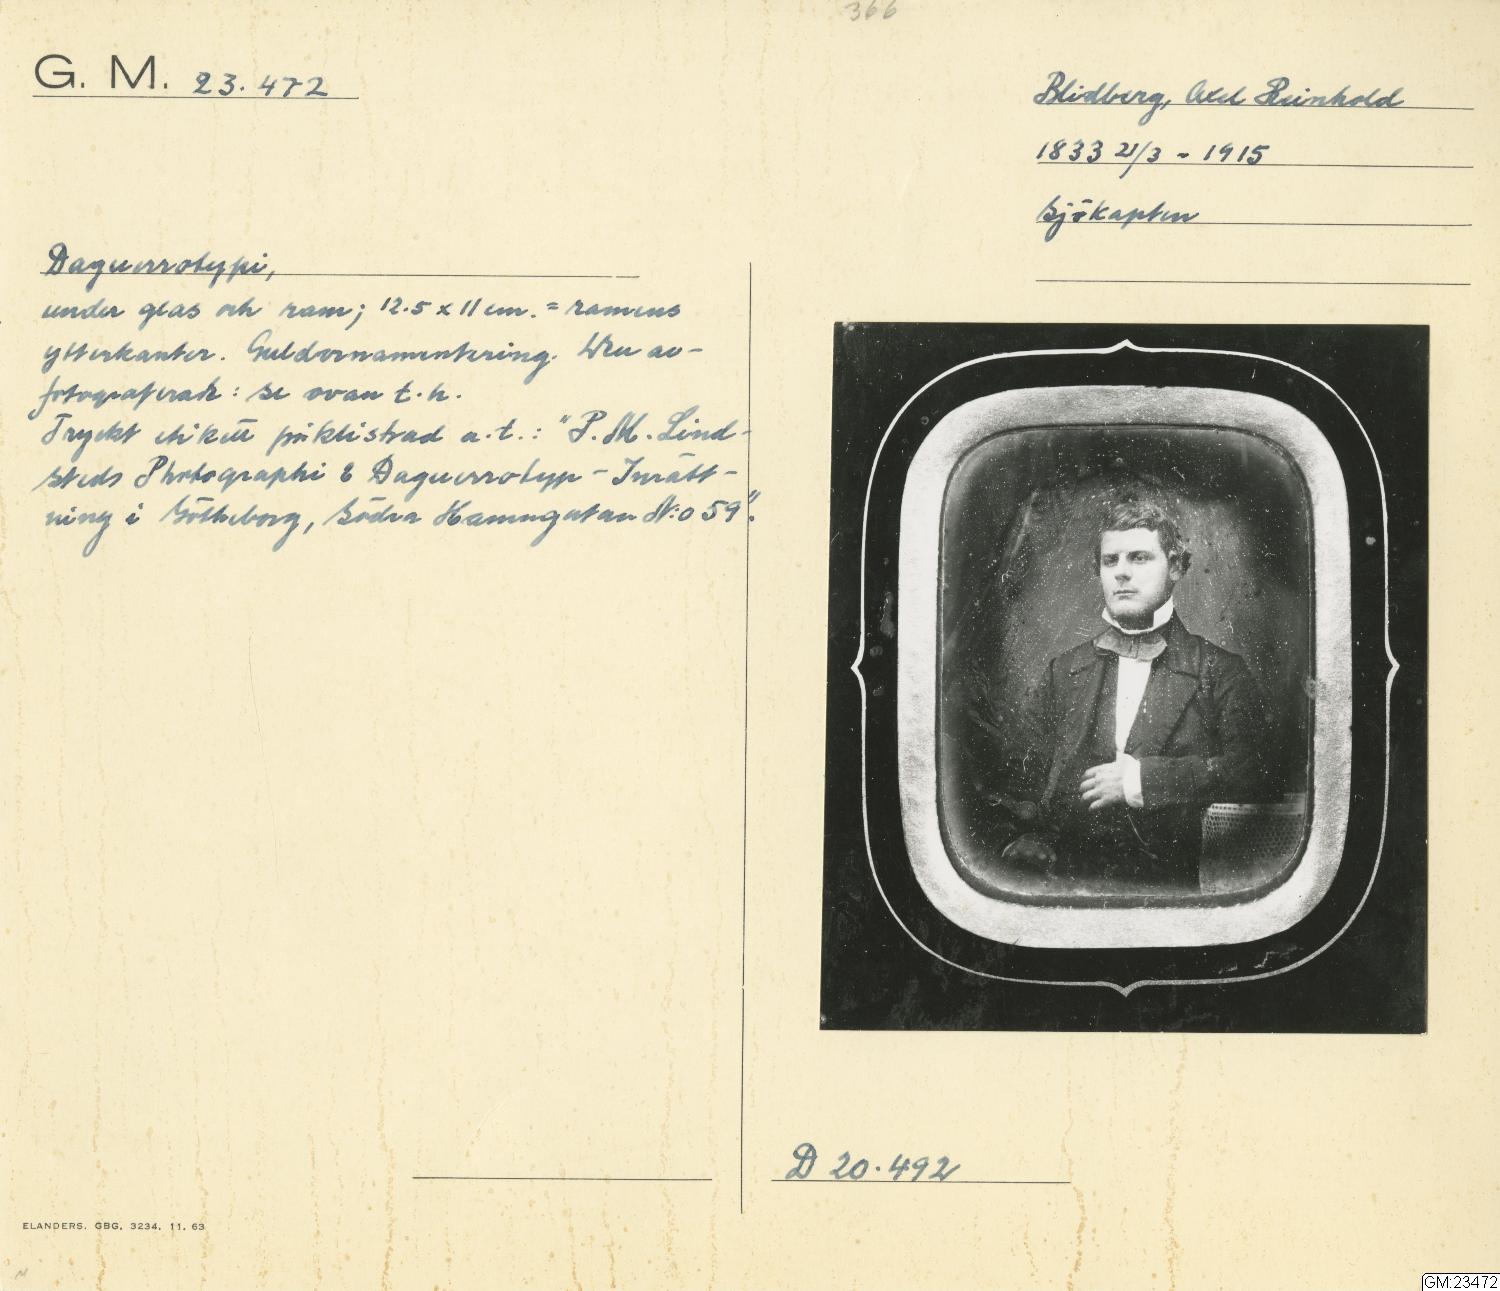 366
G. M. 23.472
Blidberg, Axel Reinhold
1833 21/3 - 1915
Sjökapten
Daguerrotypi,
under glas och ram; 12.5 x 11 cm. = ramens
ytterkanter. Guldornamentering. Den av-
fotograferade: se ovan t.h.
Tryckt etikett påklistrad a.t.: "P. M. Lind-
steds Photographi & Daguerrotyp - Inrätt-
ning i Götheborg, Södra Hamngatan N:o 59".
D 20.492
ELANDERS. GBG. 3234. 11. 63
GM:23472